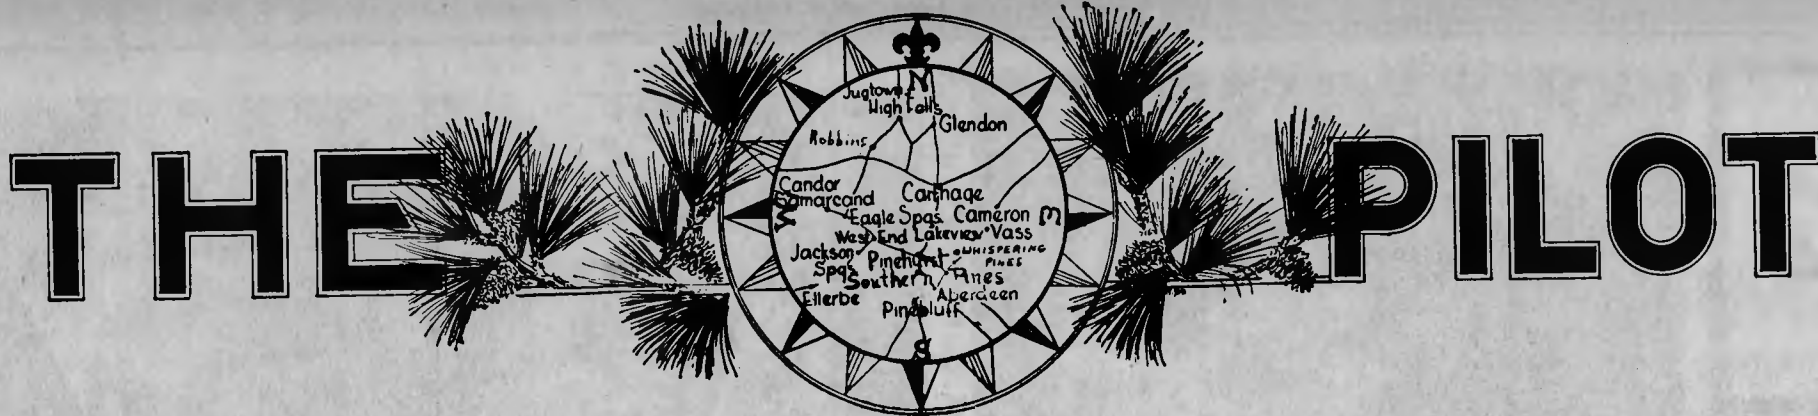 THE PILOT
N
Jugtown
High Falls
Glendon
Robbins
Candor
Samarcand
Carthage
Eagle Spgs. Cameron
W E
West End Lakeview Vass
Jackson Pinehurst WHISPERING
Spgs. PINES
Southern Pines
Ellerbe Aberdeen
Pinebluff
S